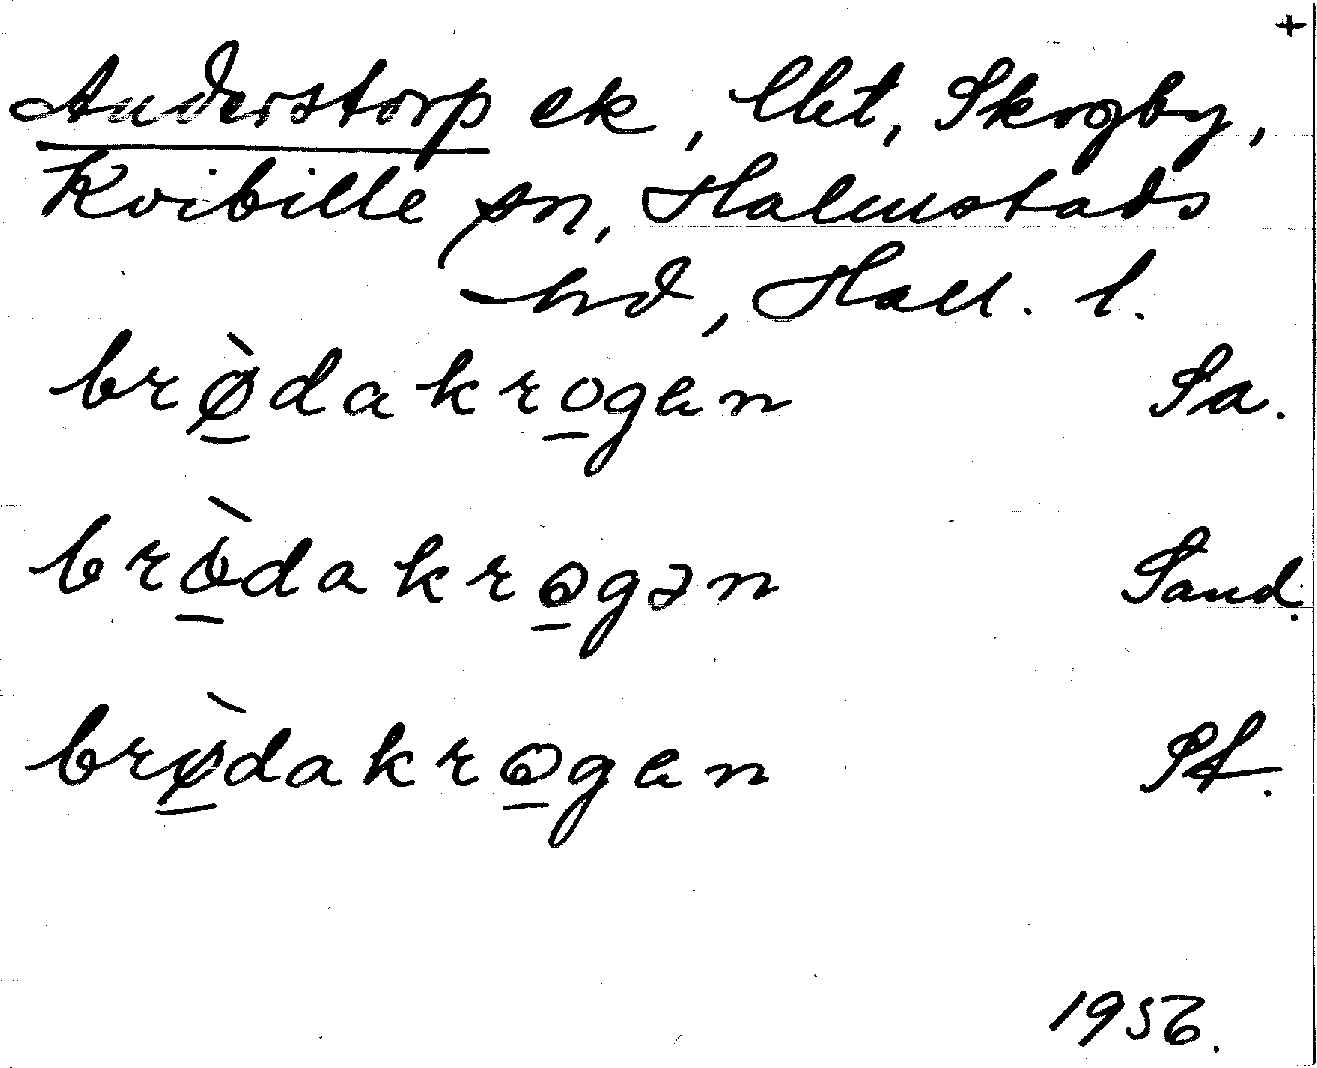 +
Anderstorp ek, lht, Skogby,
Kvibille sn, Halmstads
hd, Hall. l.
brø̲̀dakro̲gen Sa.
brò̲dakro̲gən Sand.
brø̲̀dakro̲gen Pf.
1956.